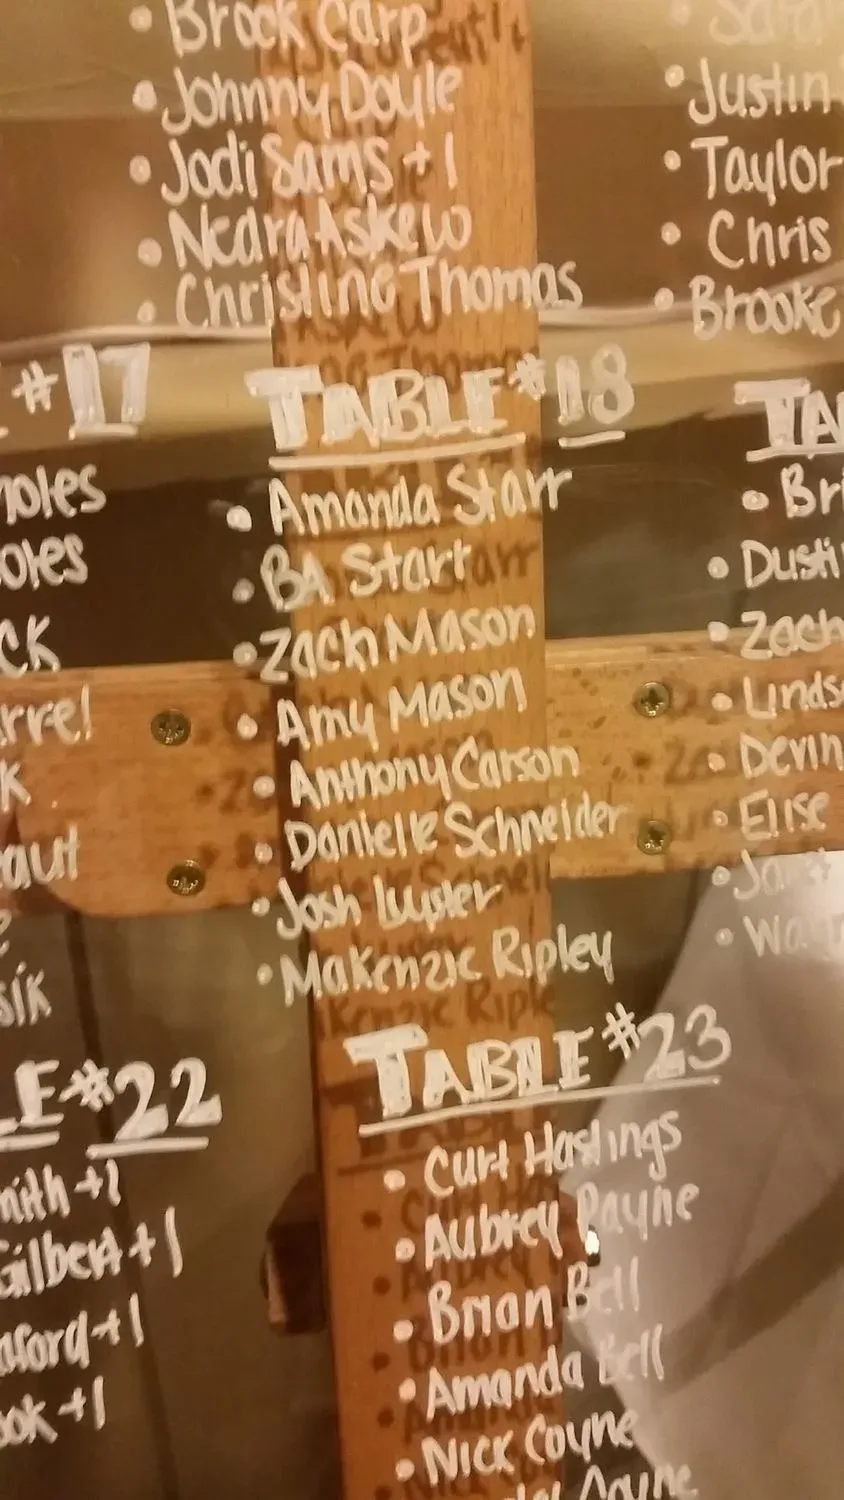 Brock Carp
Johnny Doyle
Jodi Sams +1
Nedra Askew
Christine Thomas
Justin
Taylor
Chris
Brooke
#17
noles
oles
ck
rrel
k
aut
sik
TABLE #18
Amanda Starr
BA Starr
Zach Mason
Amy Mason
Anthony Carson
Danielle Schneider
Josh Luster
Makenzie Ripley
TA
Bri
Dusti
Zach
Linds
Devin
Elise
LE #22
mith +1
Gilbert +1
aford +1
ook +1
TABLE #23
Curt Hastings
Aubrey Payne
Brian Bell
Amanda Bell
Nick Coyne
Coyne